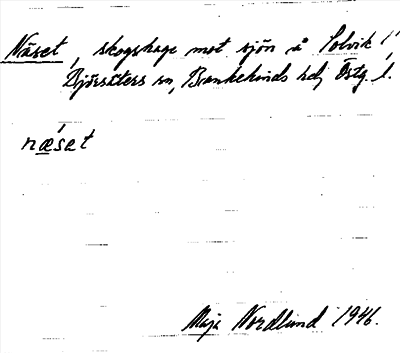 Näset, skogshage mot sjön å Solvik 1/1,
Björsäters sn, Bankekinds hd, Östg. l.
næ´set
Maja Nordlund 1946.